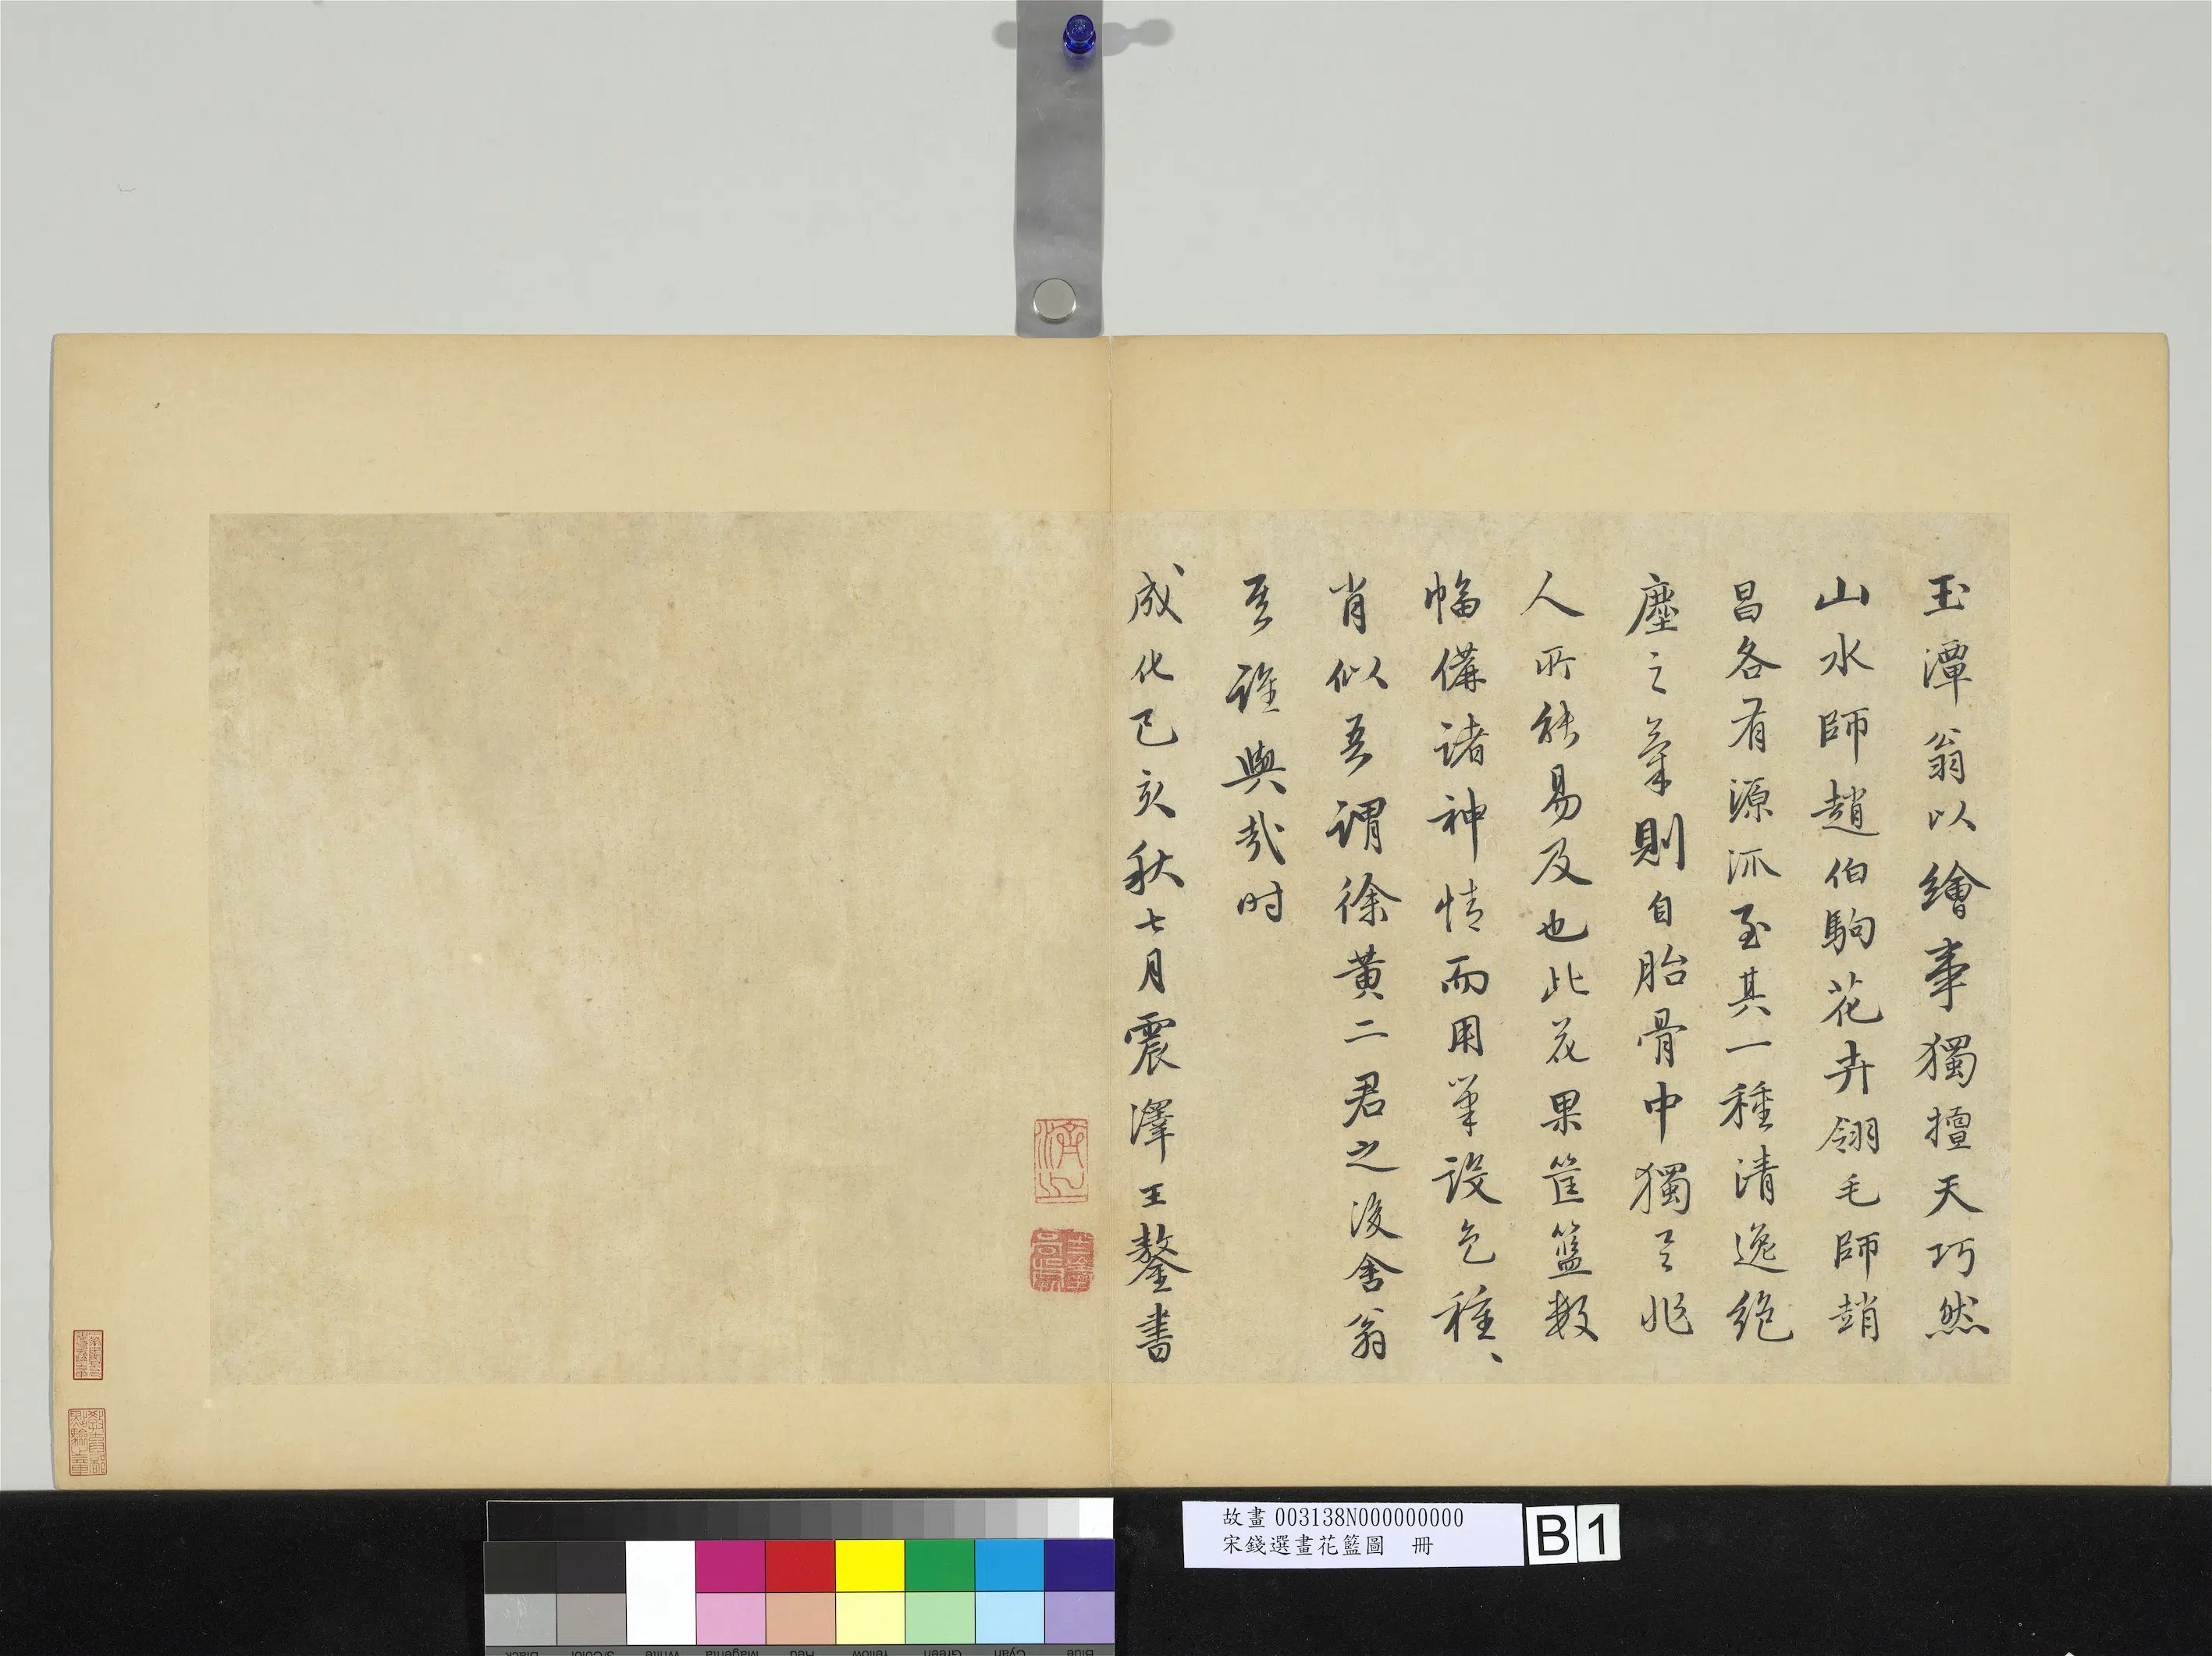 玉潭翁以繪事獨擅天巧然
山水師趙伯駒花卉翎毛師趙
昌各有源派至其一種清逸絕
塵之氣則自胎骨中獨具非
人所能易及也此花果筐籃數
幅備諸神情而用筆設色種、
肖似吾謂徐黃二君之後舍翁
吾誰與哉时
成化己亥秋七月震澤王鏊書
濟之
教育部點驗之章
故畫 003138N000000000
宋錢選畫花籃圖 冊
B 1
Black 3/Color White Magenta Red Yellow Green Cyan Blue